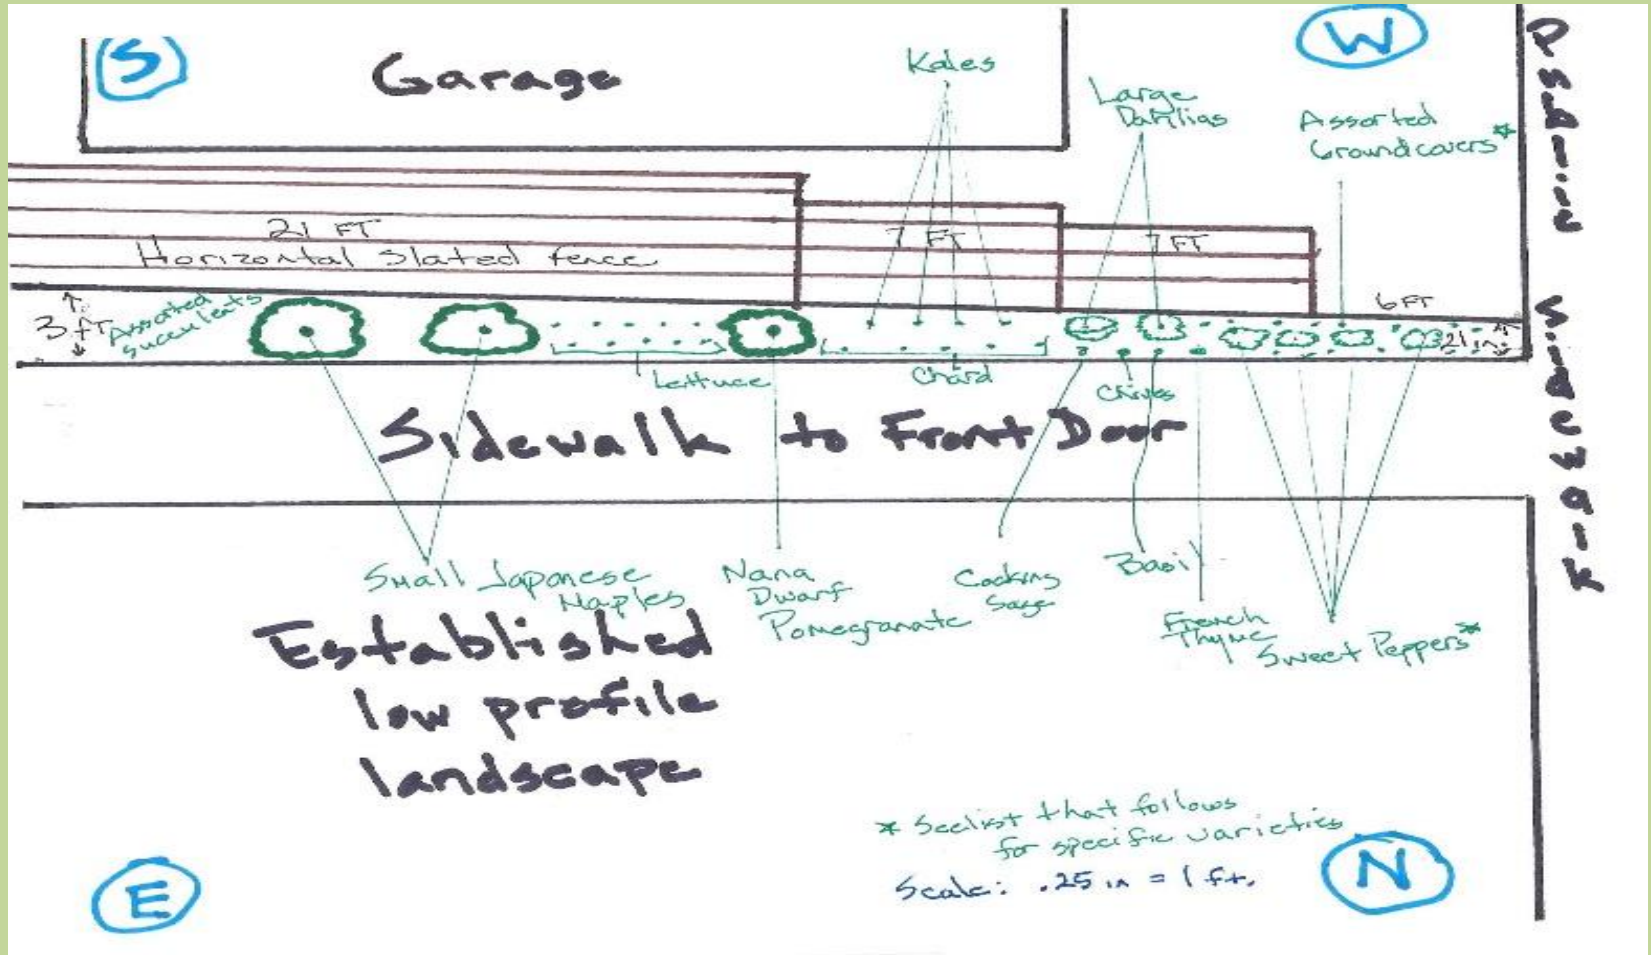 S
Garage
Kales
Large
Dahlias
W
Assorted
Groundcovers*
21 FT
Horizontal Slated fence
7 FT
7 FT
6 FT
3 ft
Assorted
succulents
21 in
Lettuce
Chard
Chives
Sidewalk to Front Door
Small Japanese
Maples
Nana
Dwarf
Pomegranate
Cooking
Sage
Basil
French
Thyme
Sweet Peppers*
Established
low profile
landscape
* See list that follows
for specific varieties
Scale: .25 in = 1 ft.
E
N